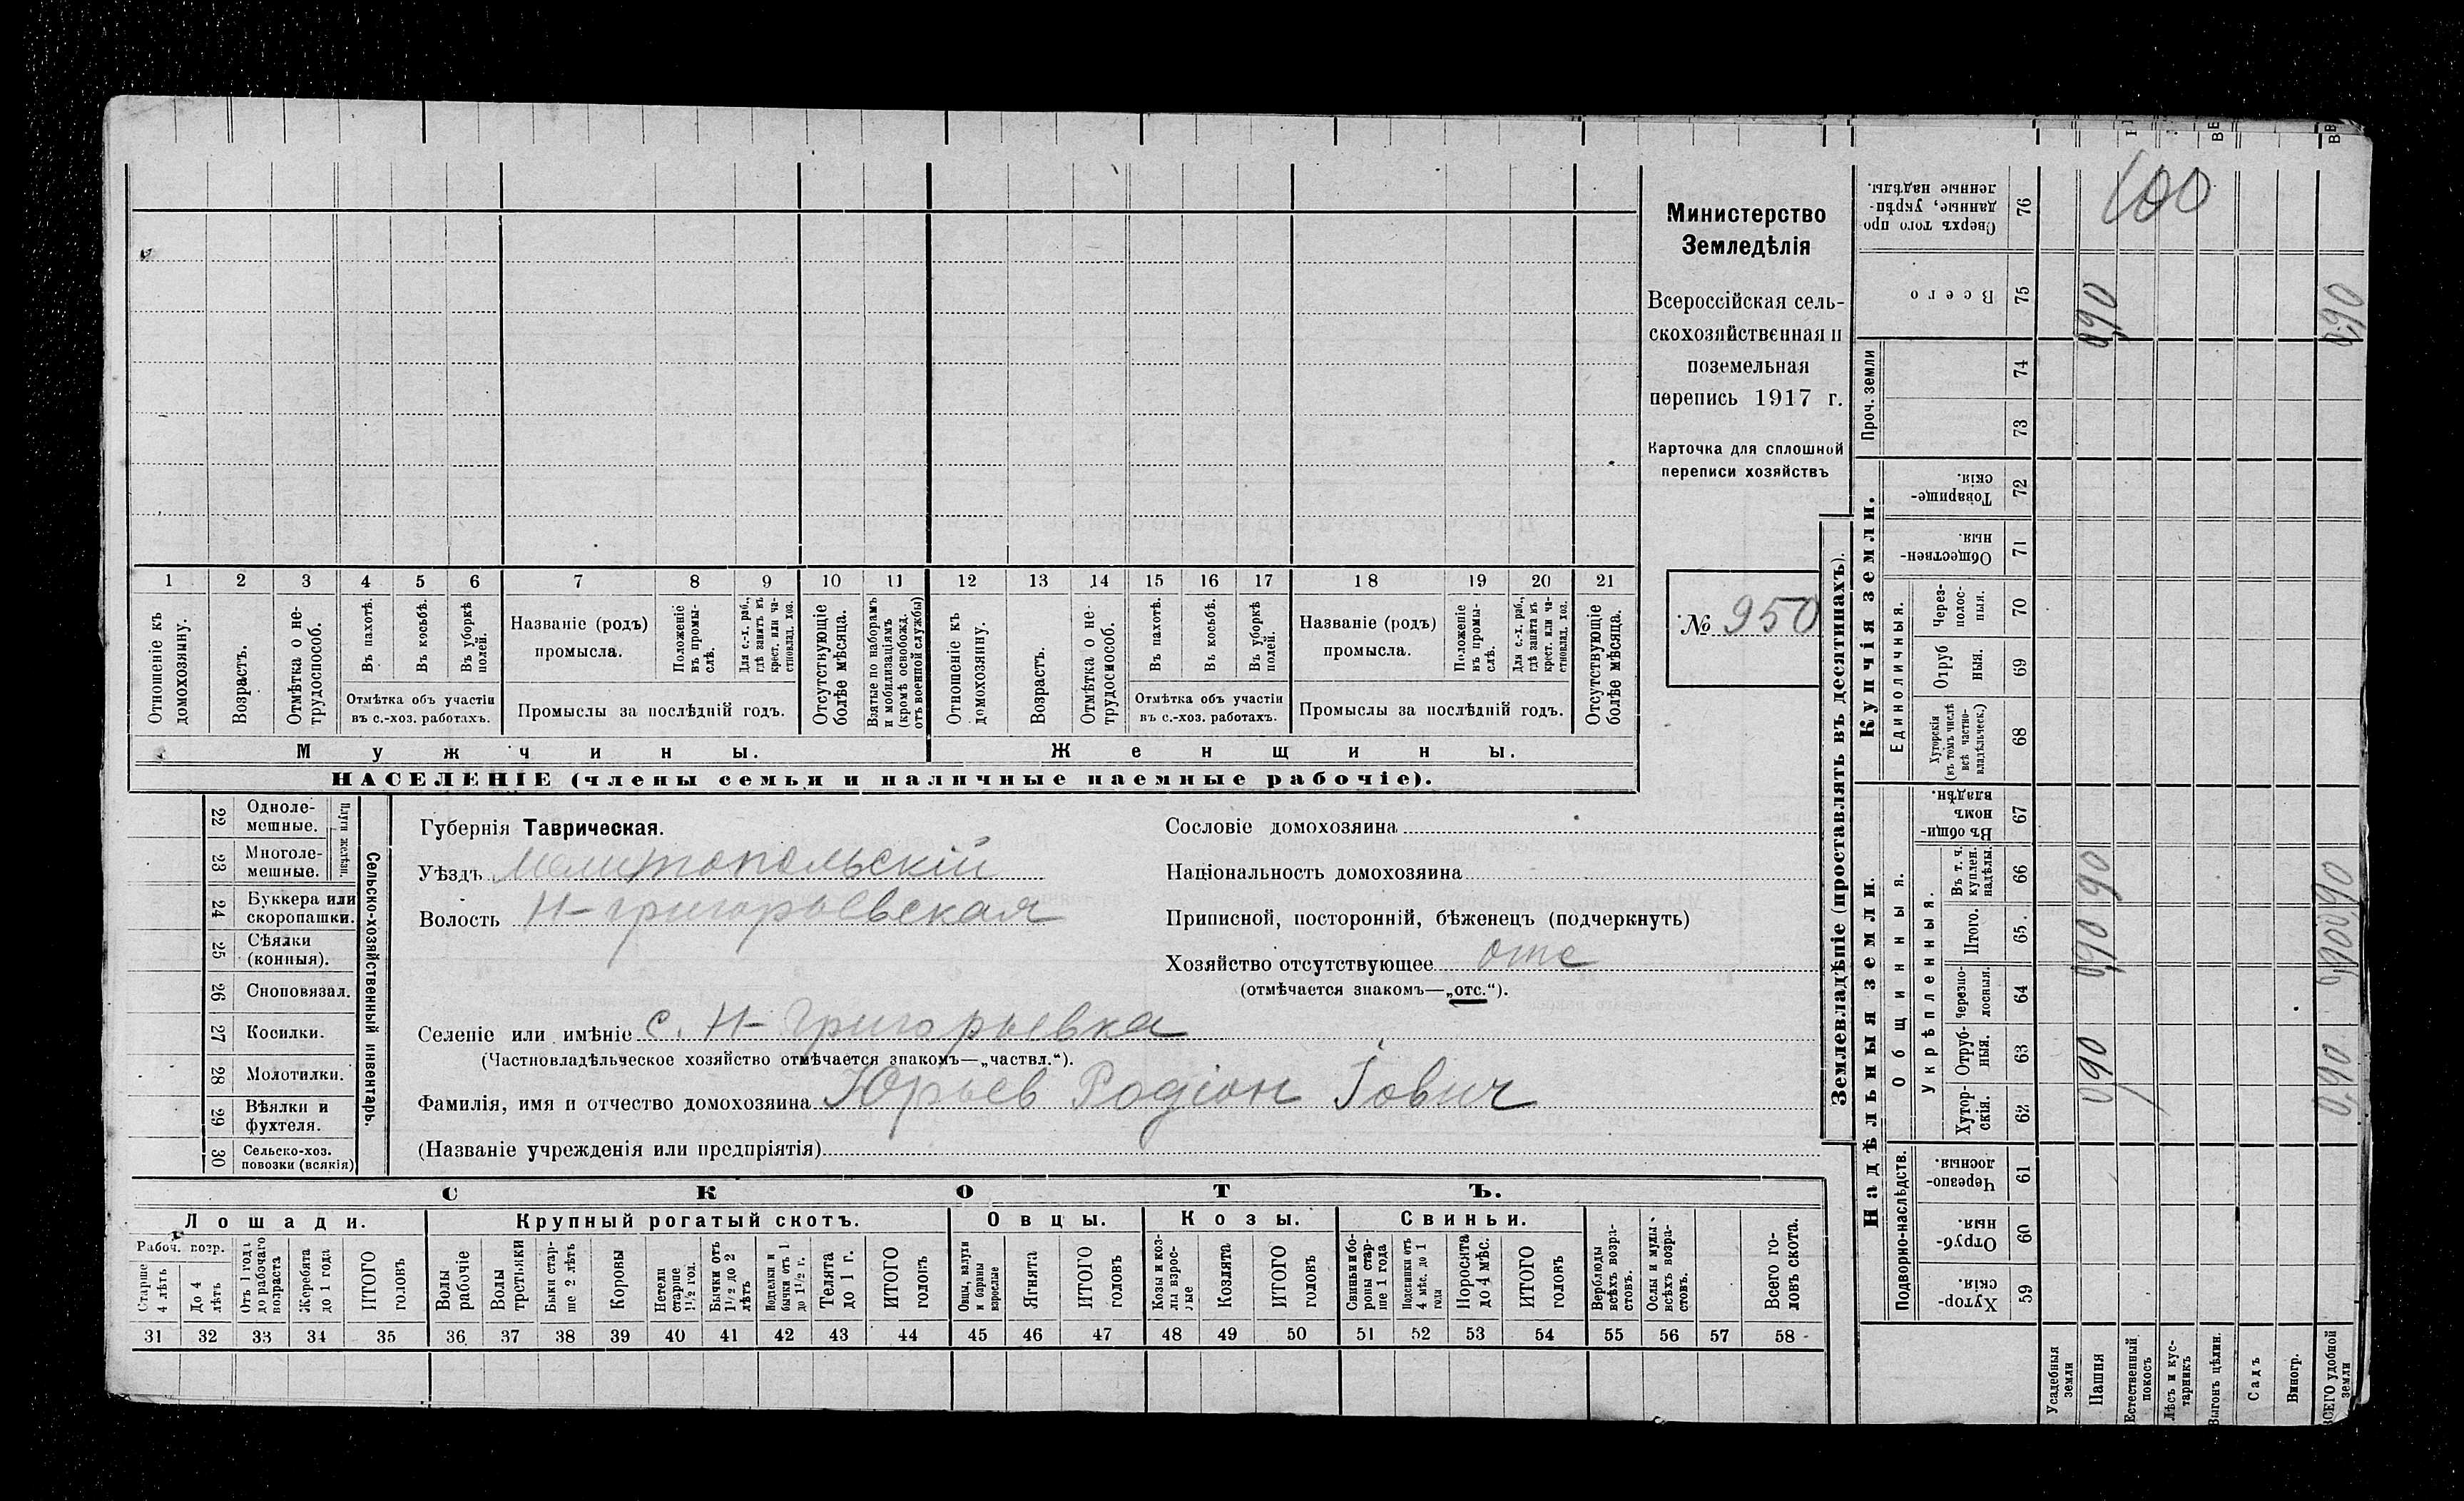 Министерство
Земледѣлія
Всероссійская сель-
скохозяйственная и
поземельная
перепись 1917 г.
Карточка для сплошной
переписи хозяйствъ
№ 950
1 2 3 4 5 6 7 8 9 10 11 12 13 14 15 16 17 18 19 20 21
Отношеніе къ домохозяину.
Возрастъ.
Отмѣтка о не-трудоспособ.
Въ пахотѣ.
Въ косьбѣ.
Въ уборкѣ полей.
Отмѣтка объ участіи
въ с.-хоз. работахъ.
Названіе (родъ)
промысла.
Положеніе въ промы-слѣ.
Для с.-х. раб., гдѣ занятъ въ крест. или ча-стновлад. хоз.
Промыслы за послѣдній годъ.
Отсутствующіе болѣе мѣсяца.
Взятые по наборамъ и мобилизаціямъ (кромѣ освобожд. отъ военной службы)
Отношеніе къ домохозяину.
Возрастъ.
Отмѣтка о не-трудоспособ.
Въ пахотѣ.
Въ косьбѣ.
Въ уборкѣ полей.
Отмѣтка объ участіи
въ с.-хоз. работахъ.
Названіе (родъ)
промысла.
Положеніе въ промы-слѣ.
Для с.-х. раб., гдѣ занята въ крест. или ча-стновлад. хоз.
Промыслы за послѣдній годъ.
Отсутствующіе болѣе мѣсяца.
Мужчины. Женщины.
НАСЕЛЕНІЕ (члены семьи и наличные наемные рабочіе).
22 Одноле-мешные.
23 Многоле-мешные.
Плуги желѣзн.
24 Буккера или скоропашки.
25 Сѣялки (конныя).
26 Сноповязал.
27 Косилки.
28 Молотилки.
29 Вѣялки и фухтеля.
30 Сельско-хоз. повозки (всякія)
Сельско-хозяйственный инвентарь.
Губернія Таврическая.
Уѣздъ Мелитопольскій
Волость Н-Григорьевская
Сословіе домохозяина
Національность домохозяина
Приписной, посторонній, бѣженецъ (подчеркнуть)
Хозяйство отсутствующее отс
(отмѣчается знакомъ—„отс.“).
Селеніе или имѣніе с. Н-Григорьевка
(Частновладѣльческое хозяйство отмѣчается знакомъ—„частвл.“).
Фамилія, имя и отчество домохозяина Юрьев Родіон Іович
(Названіе учрежденія или предпріятія)
СКОТЪ.
Лошади. Крупный рогатый скотъ. Овцы. Козы. Свиньи.
Рабоч. возр.
Старше 4 лѣтъ
До 4 лѣтъ
Отъ 1 года до рабочаго возраста
Жеребята до 1 года
ИТОГО головъ
Волы рабочіе
Волы третьяки
Быки стар-ше 2 лѣтъ
Коровы
Нетели старше 1½ год.
Бычки отъ 1½ до 2 лѣтъ
Подтелки и бычки отъ 1 до 1½ г.
Телята до 1 г.
ИТОГО головъ
Овцы, валухи и бараны взрослые
Ягнята
ИТОГО головъ
Козы и коз-лы взрос-лые
Козлята
ИТОГО головъ
Свиньи и бо-ровы стар-ше 1 года
Подсвинки отъ 4 мѣс. до 1 года
Поросята до 4 мѣс.
ИТОГО головъ
Верблюды всѣхъ возра-стовъ.
Ослы и мулы всѣхъ возра-стовъ.
Всего го-ловъ скота.
31 32 33 34 35 36 37 38 39 40 41 42 43 44 45 46 47 48 49 50 51 52 53 54 55 56 57 58
Землевладѣніе (проставлять въ десятинахъ).
Купчія земли.
Надѣльныя земли.
Сверхъ того про-данные, укрѣп-ленные надѣлы. 76 100
Всего 75 0,90 0,90
Проч. земли 74 73
Товарище-скія. 72
Обществен-ныя. 71
Единоличныя.
Через-полос-ныя. 70
Отруб-ныя. 69
Хуторскія (въ томъ числѣ всѣ частно-владѣльческ.) 68
Въ общин-номъ владѣн. 67
Общинныя.
Укрѣпленныя.
Въ т. ч. куплен. надѣлы. 66 90
Итого. 65 0,90
Черезпо-лосныя. 64
Отруб-ныя. 63 0,90 0,90
Хутор-скія. 62
Подворно-наслѣдств.
Черезпо-лосныя 61
Отруб-ныя. 60
Хутор-скія. 59
Усадебныя земли
Пашня
Естественный покосъ
Лѣсъ и кус-тарникъ
Выгонъ цѣлин.
Садъ
Виногр.
ВСЕГО удобной земли